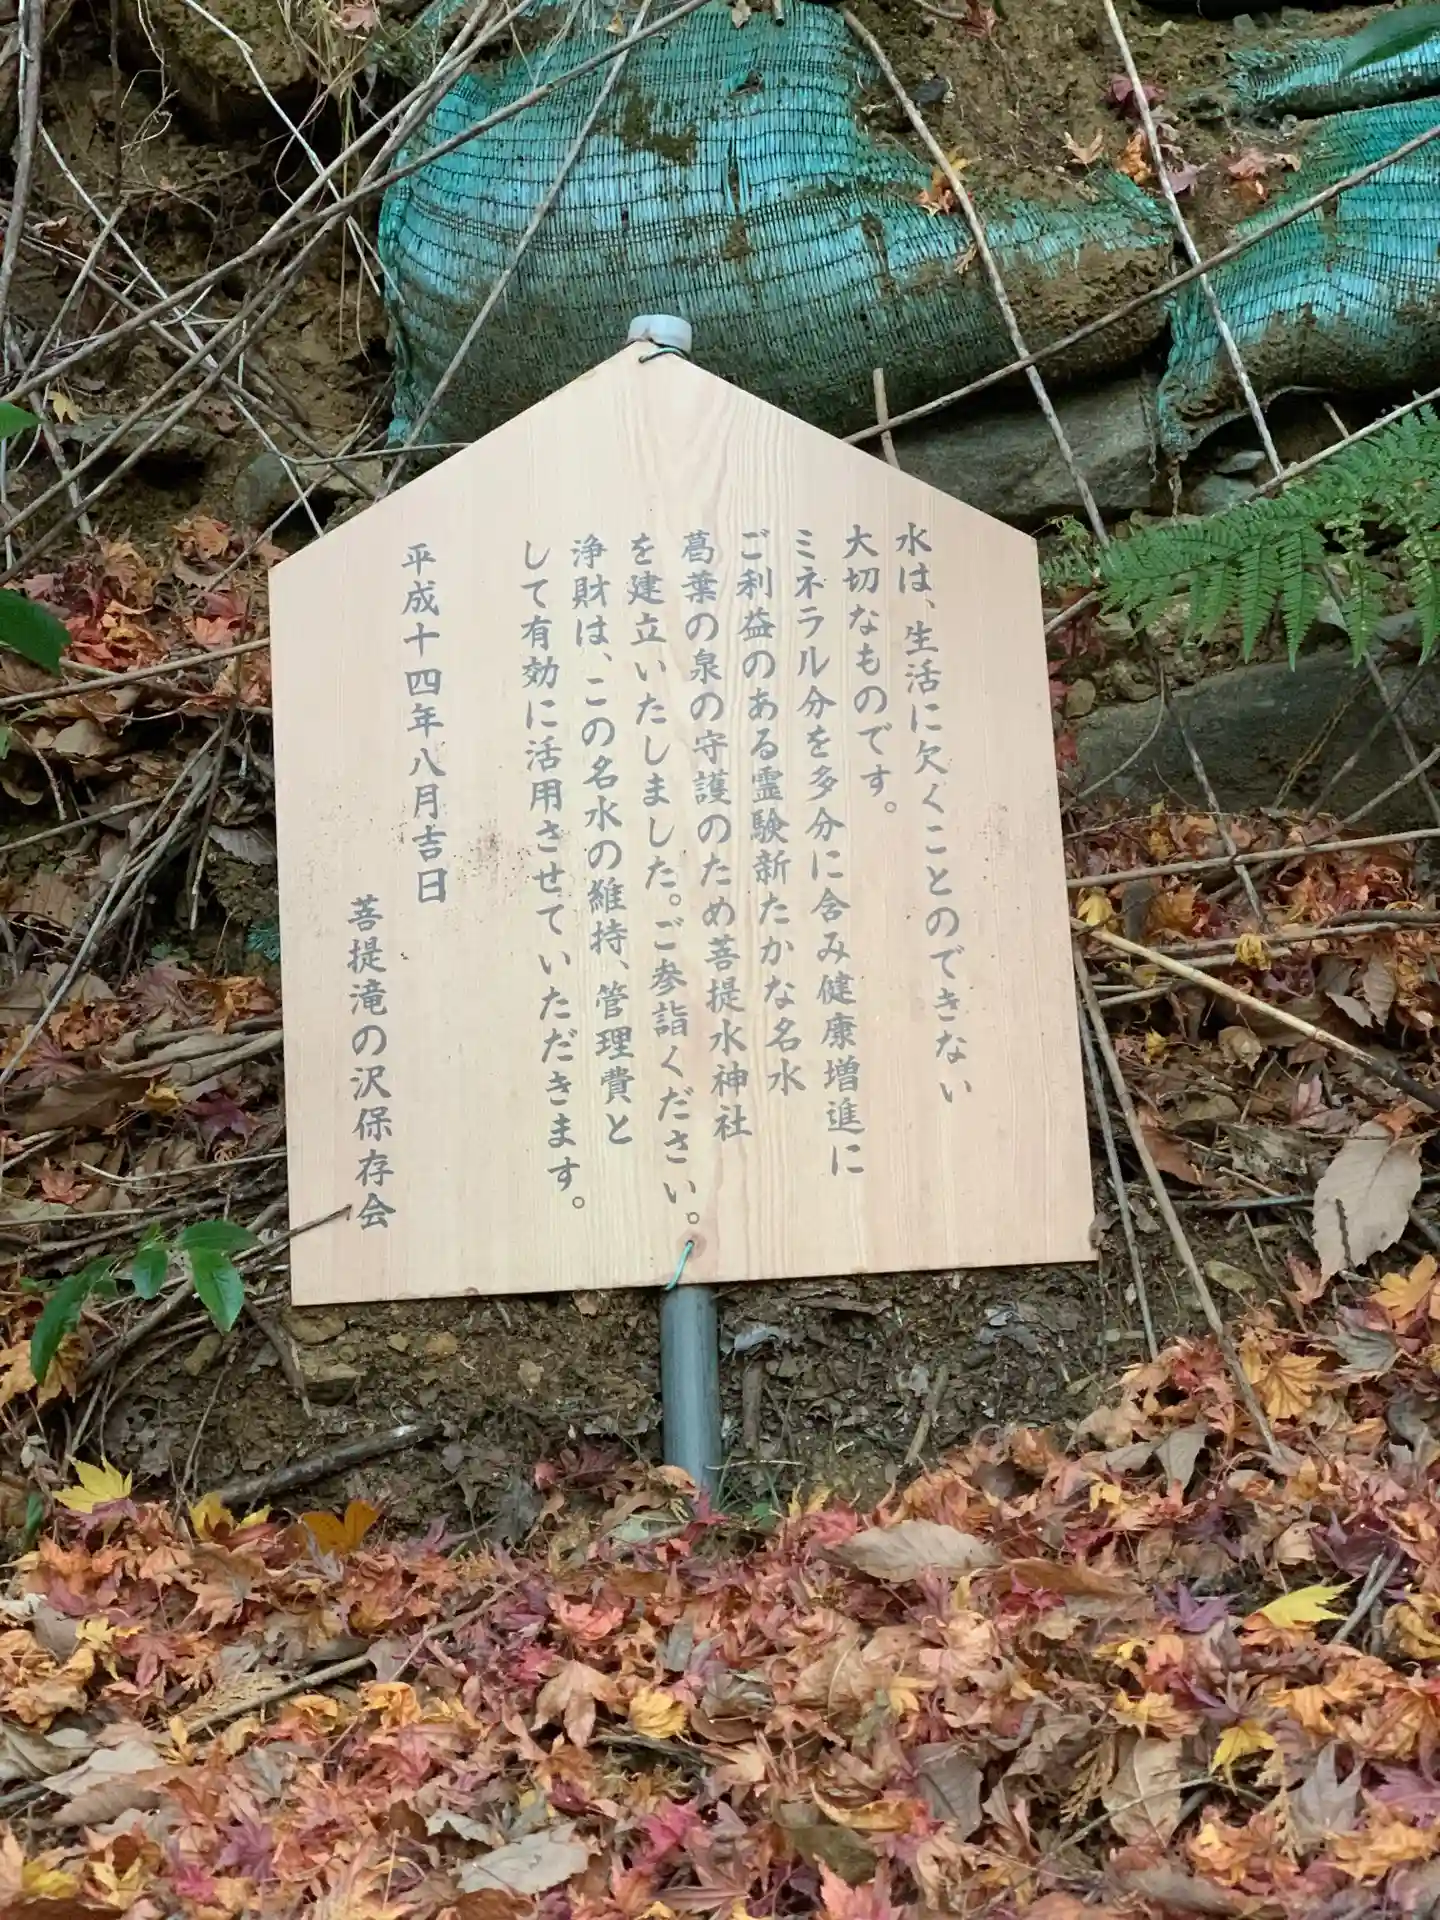 水は、生活に欠くことのできない
大切なものです。
ミネラル分を多分に含み健康増進に
ご利益のある霊験新たかな名水
葛葉の泉の守護のため菩提水神社
を建立いたしました。ご参詣ください。
浄財は、この名水の維持、管理費と
して有効に活用させていただきます。
平成十四年八月吉日
菩提滝の沢保存会